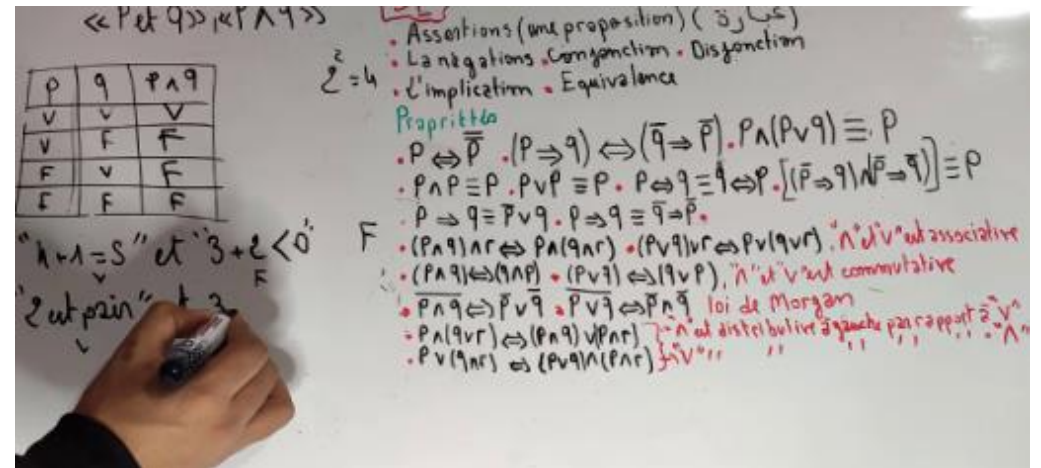 «P et q», «P∧q»
p q P∧q
V V V
V F F
F V F
F F F
"4+1=5" et "3+2<0"
V F
F
"2 est pair" et 2
V
2²=4
. Assertions (une proposition) (عبارة)
. La négations . Conjonction . Disjonction
. L'implication . Equivalence
Proprittés
. P ⇔ P̿ . (P⇒q) ⇔ (q̅⇒P̅) . P∧(P∨q) ≡ P
. P∧P≡P . P∨P≡P . P⇔q≡q⇔P . [(P̅⇒q)∧(P̅⇒q̅)]≡P
. P⇒q≡P̅∨q . P⇒q≡q̅⇒P̅ .
. (P∧q)∧r⇔P∧(q∧r) . (P∨q)∨r⇔P∨(q∨r) . "∧" et "∨" est associative
. (P∧q)⇔(q∧P) . (P∨q)⇔(q∨P), "∧" et "∨" est commutative
. P̅∧̅q̅⇔P̅∨q̅ . P̅∨̅q̅⇔P̅∧q̅ loi de Morgan
. P∧(q∨r)⇔(P∧q)∨(P∧r) } "∧" est distributive à gauche par rapport à "∨"
. P∨(q∧r)⇔(P∨q)∧(P∨r) } "∨" " " " " " "∧"